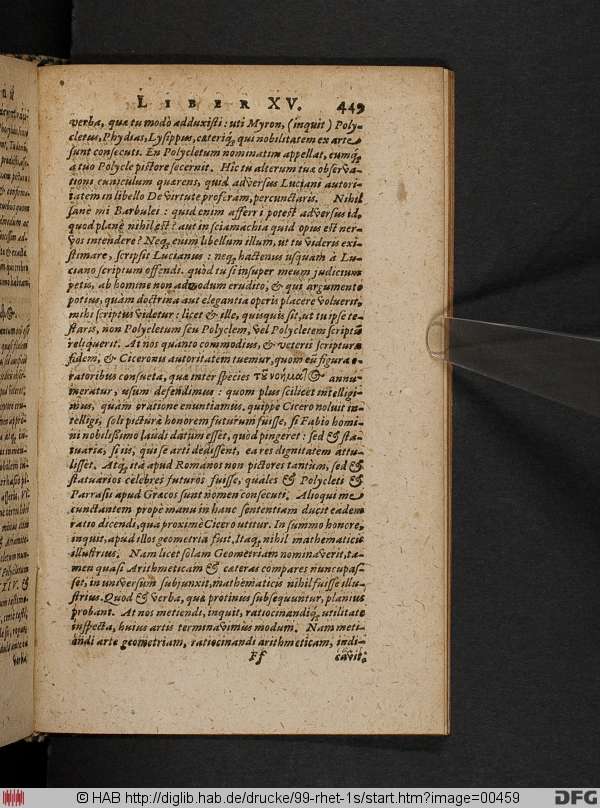 LIBER XV. 449
verba, quæ tu modò adduxisti: uti Myron, (inquit) Poly-
cletus, Phydias, Lysippus, cæteriq; qui nobilitatem ex arte
sunt consecuti. En Polycletum nominatim appellat, eumq;
à tuo Polycle pictore secernit. Hic tu alterum tuæ observa-
tioni cuniculum quærens, quid adversus Luciani autori-
tatem in libello De virtute proferam, percunctaris. Nihil
sanè mi Barbulei: quid enim afferri potest adversus id,
quod planè nihil est? aut in sciamachia quid opus est ner-
vos intendere? Neq; enim libellum illum, ut tu videris exi-
stimare, scripsit Lucianus: neq; hactenus usquam à Lu-
ciano scriptum offendi. quòd tu si insuper meum judicium
petis, ab homine non admodum erudito, & qui argumento
potius, quàm doctrina aut elegantia operis placere voluerit,
mihi scriptus videtur: licet & ille, quisquis sit, ut tu ipse te-
staris, non Polycletum seu Polyclem, vel Polycletem scriptũ
reliquerit. At nos quanto commodius, & veteris scripturæ
fidem, & Ciceronis autoritatem tuemur, quom eũ figuræ o-
ratoribus consueta, quæ inter species annu-
meratur, usum defendimus: quom plus scilicet intelligi-
mus, quàm oratione enuntiamus, quippe Cicero noluit in-
telligi, soli picturæ honorem futurum fuisse, si Fabio homi-
ni nobilissimo laudi datum esset, quod pingeret: sed & sta-
tuariæ, si iis, qui se arti dedissent, ea res dignitatem attu-
lisset. Atq; ita apud Romanos non pictores tantùm, sed &
statuarios celebres futuros fuisse, quales & Polycleti &
Parrasii apud Græcos sunt nomen consecuti. Alioqui me
cunctantem prope manu in hanc sententiam ducit eadem
ratio dicendi, qua proximè Cicero utitur. In summo honore,
inquit, apud illos geometria fuit, Itaq; nihil mathematicis
illustrius. Nam licet solam Geometriam nominaverit, ta-
men quasi Arithmeticam & cæteras compares nuncupas-
set, in universum subjunxit, mathematicis nihil fuisse illu-
strius. Quod & verba, quæ protinus subsequuntur, planius
probant. At nos metiendi, inquit, ratiocinandiq; utilitate
suspecta, hujus artis terminavimus modum. Nam meti-
endi arte geometriam, ratiocinandi arithmeticam, indi-
Ff cavit:
© HAB http://diglib.hab.de/drucke/99-rhet-1s/start.htm?image=00459
DFG